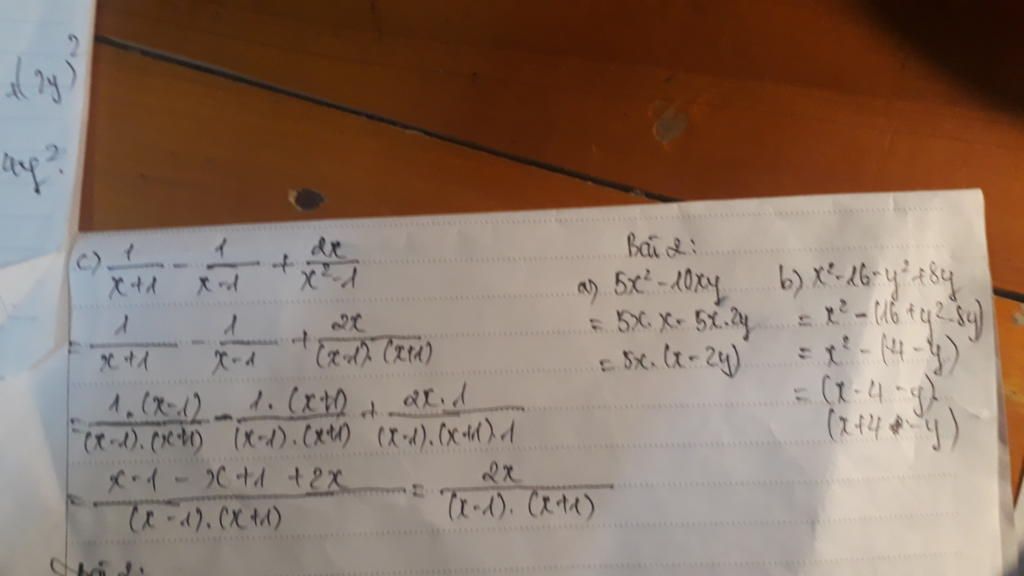 x(2y)²
4y².
c) 1/(x+1) - 1/(x-1) + 2x/(x²-1)
= 1/(x+1) - 1/(x-1) + 2x/((x-1).(x+1))
= 1.(x-1)/((x-1).(x+1)) - 1.(x+1)/((x-1).(x+1)) + 2x.1/((x-1).(x+1).1)
= (x-1 - x+1 +2x)/((x-1).(x+1)) = 2x/((x-1).(x+1))
Bài 2:
a) 5x² - 10xy
= 5x.x - 5x.2y
= 5x.(x-2y)
b) x²-16-y²+8y
= x² - (16+y²-8y)
= x² - (4-y)
= (x-4-y).
(x+4-y)
Bài 2: